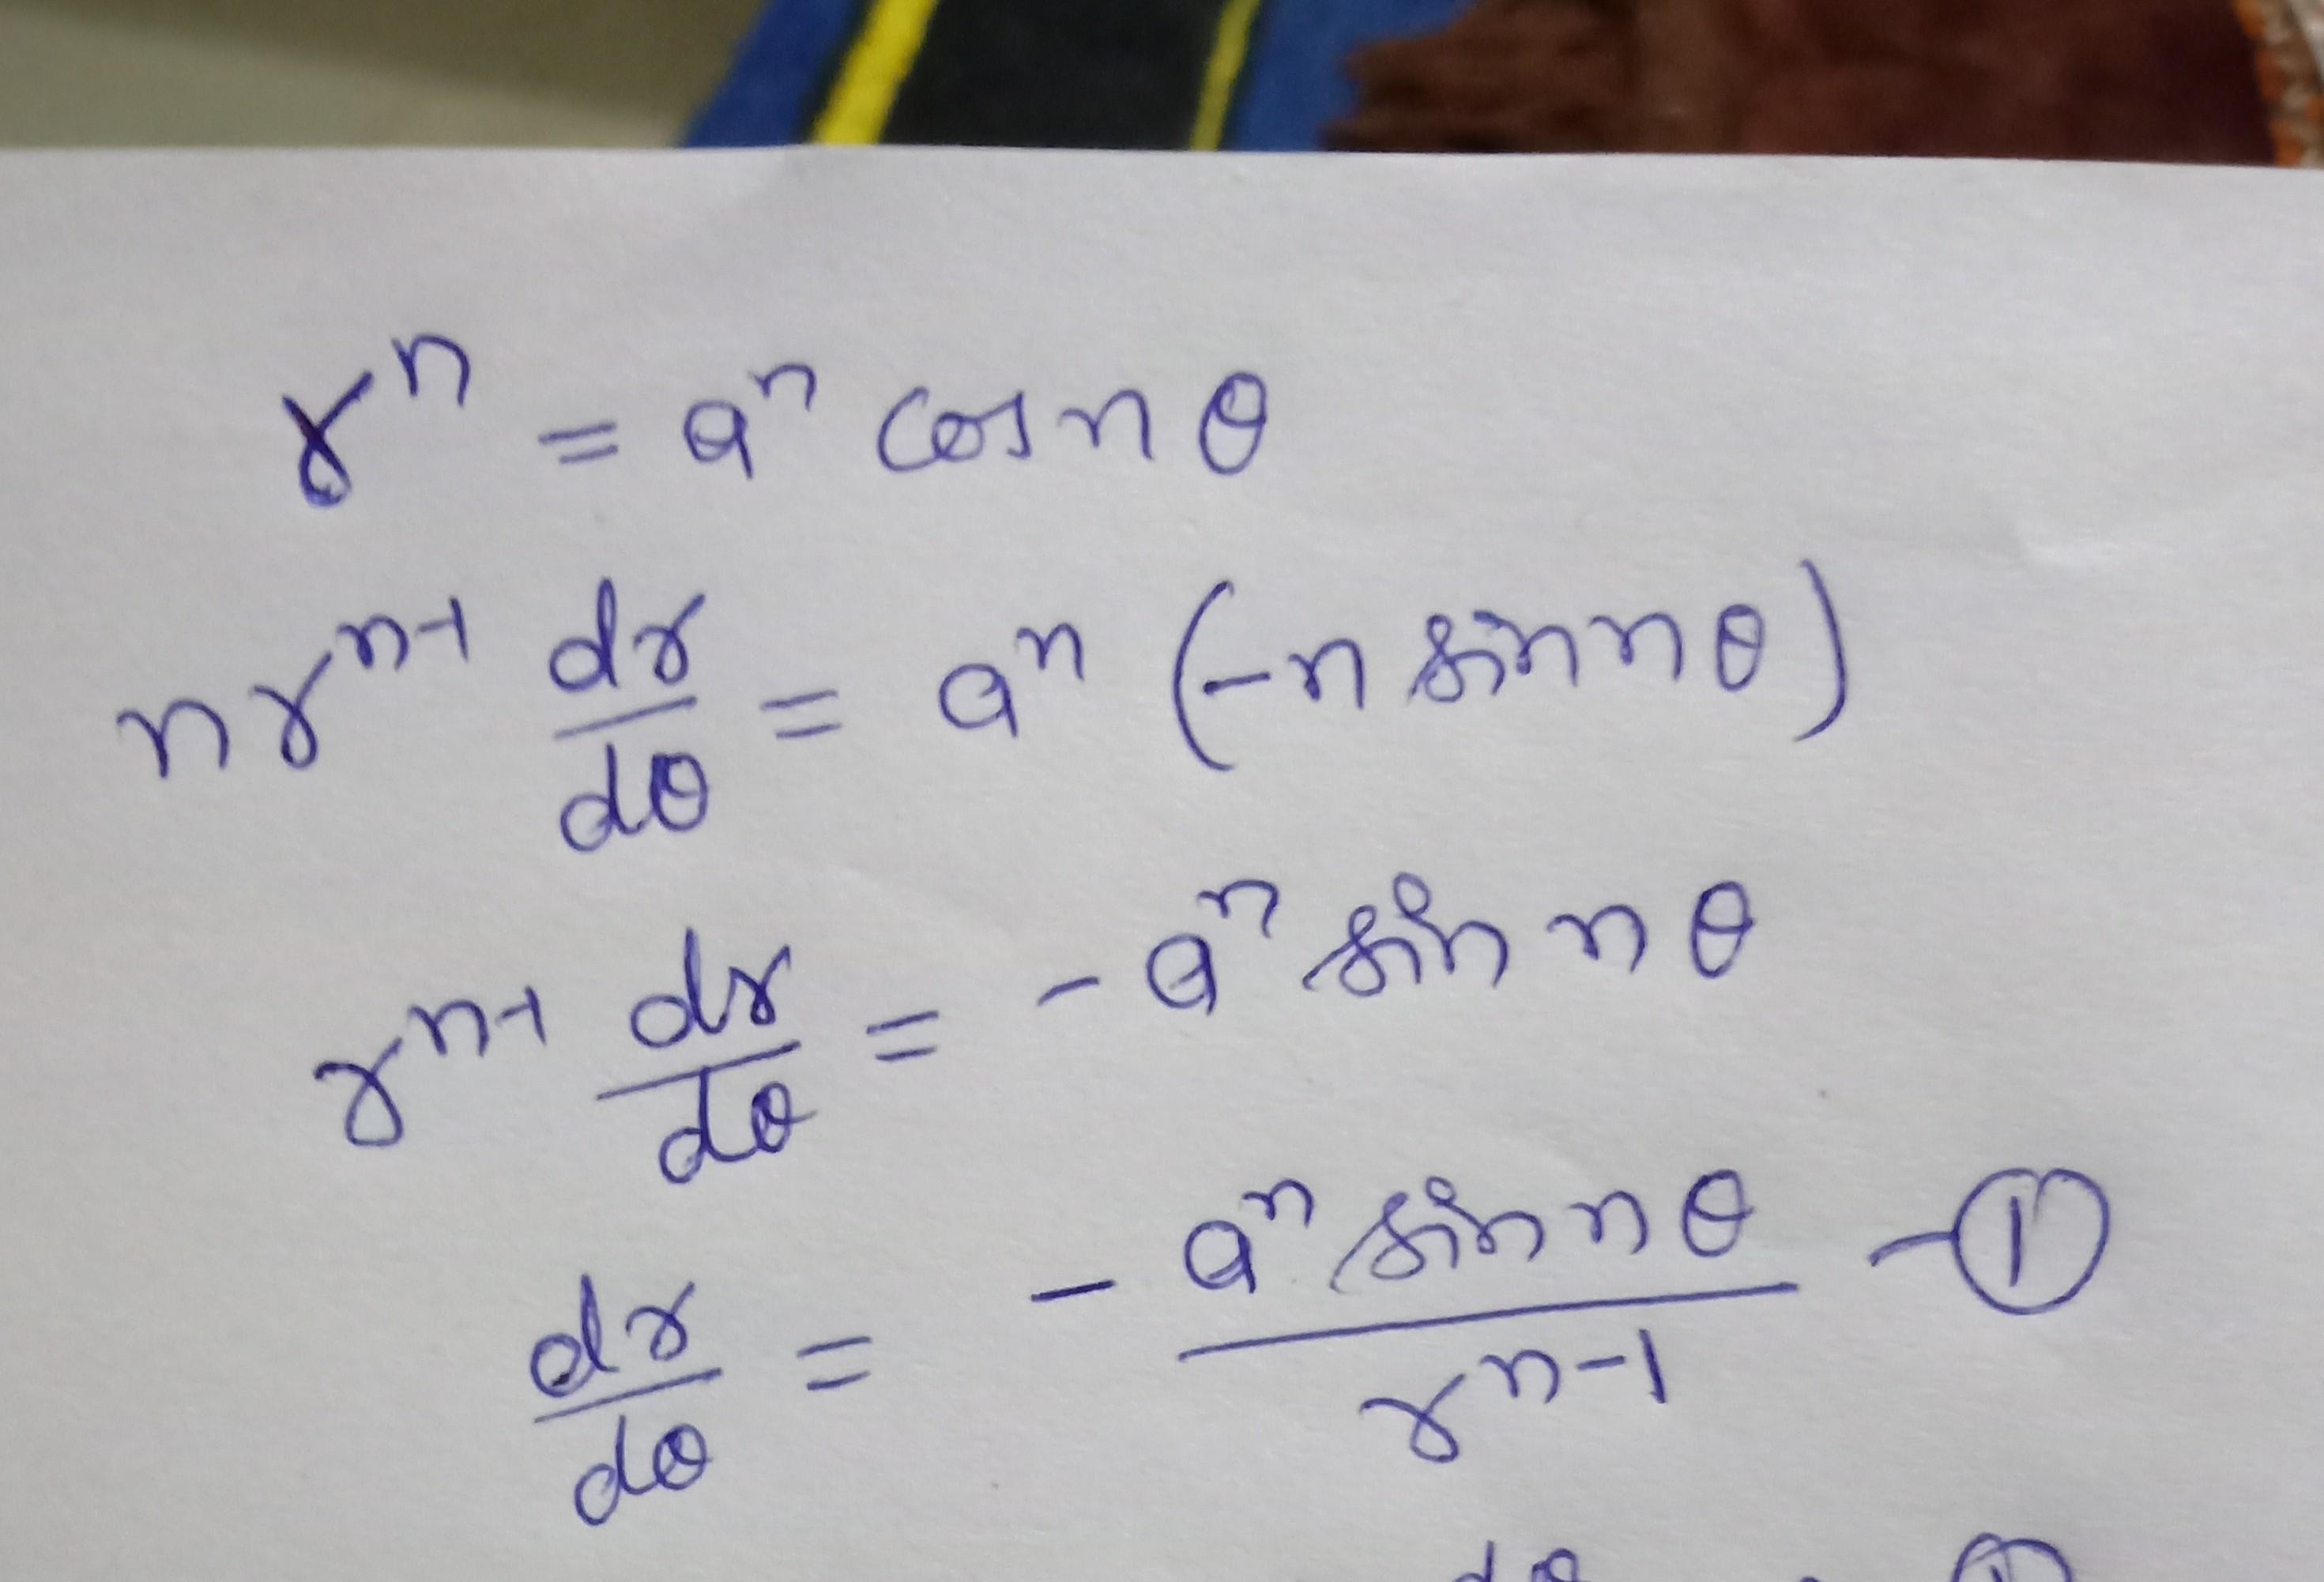 rⁿ = aⁿ cos n θ
n rⁿ⁻¹ dr/dθ = aⁿ (-n sin n θ)
rⁿ⁻¹ dr/dθ = - aⁿ sin n θ
dr/dθ = - aⁿ sin n θ / rⁿ⁻¹ - ①